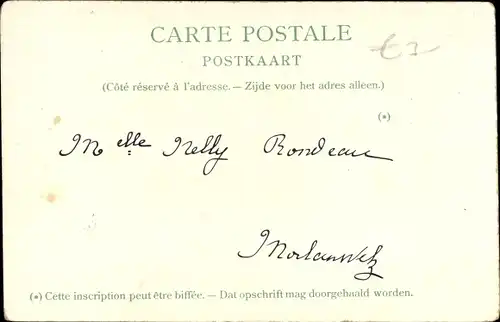 CARTE POSTALE
POSTKAART
(Côté réservé à l'adresse. — Zijde voor het adres alleen.)
(*)
Melle Nelly Rondeau
Morlanwelz
(*) Cette inscription peut être biffée. — Dat opschrift mag doorgehaald worden.